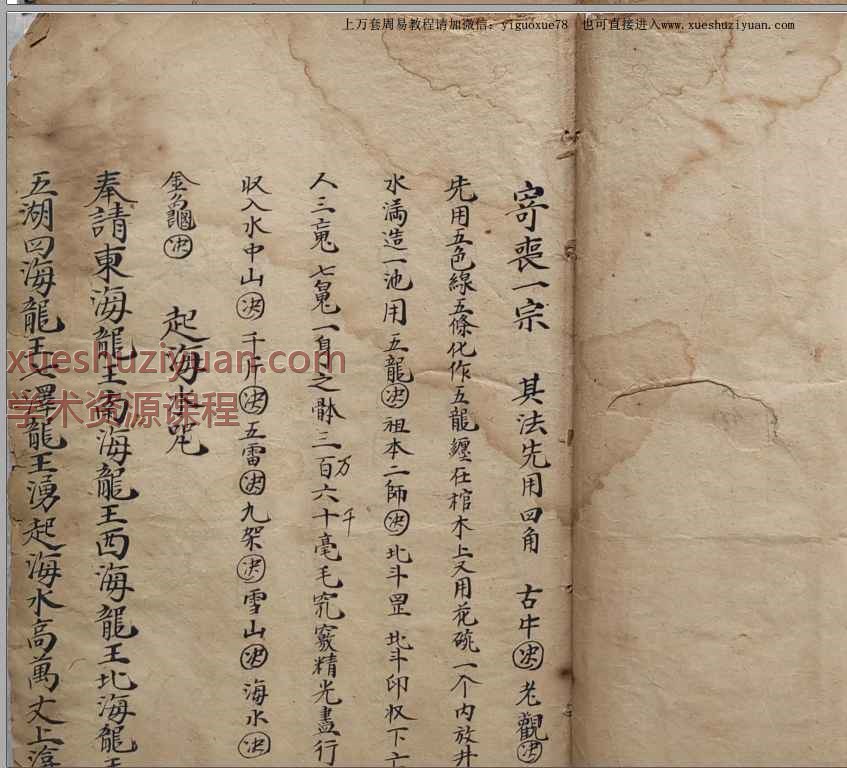 上万套周易教程请加微信：yiguoxue78 也可直接进入www.xueshuziyuan.com
寄丧一宗 其法先用四角 古牛決 老觀決
先用五色線五條化作五龍纏在棺木上又用花碗一个内放井
水滿造一池用五龍決祖本二師決北斗罡北斗印收下亡
人三魂七魄一身之骵三百万六十千毫毛竅精光盡行
收入水中山決千斤決五雷決九架決雪山決海水決
金龜決 起海水咒
奉請東海龍王南海龍王西海龍王北海龍王
五湖四海龍王七澤龍王湧起海水高萬丈上海
xueshuziyuan.com
学术资源课程